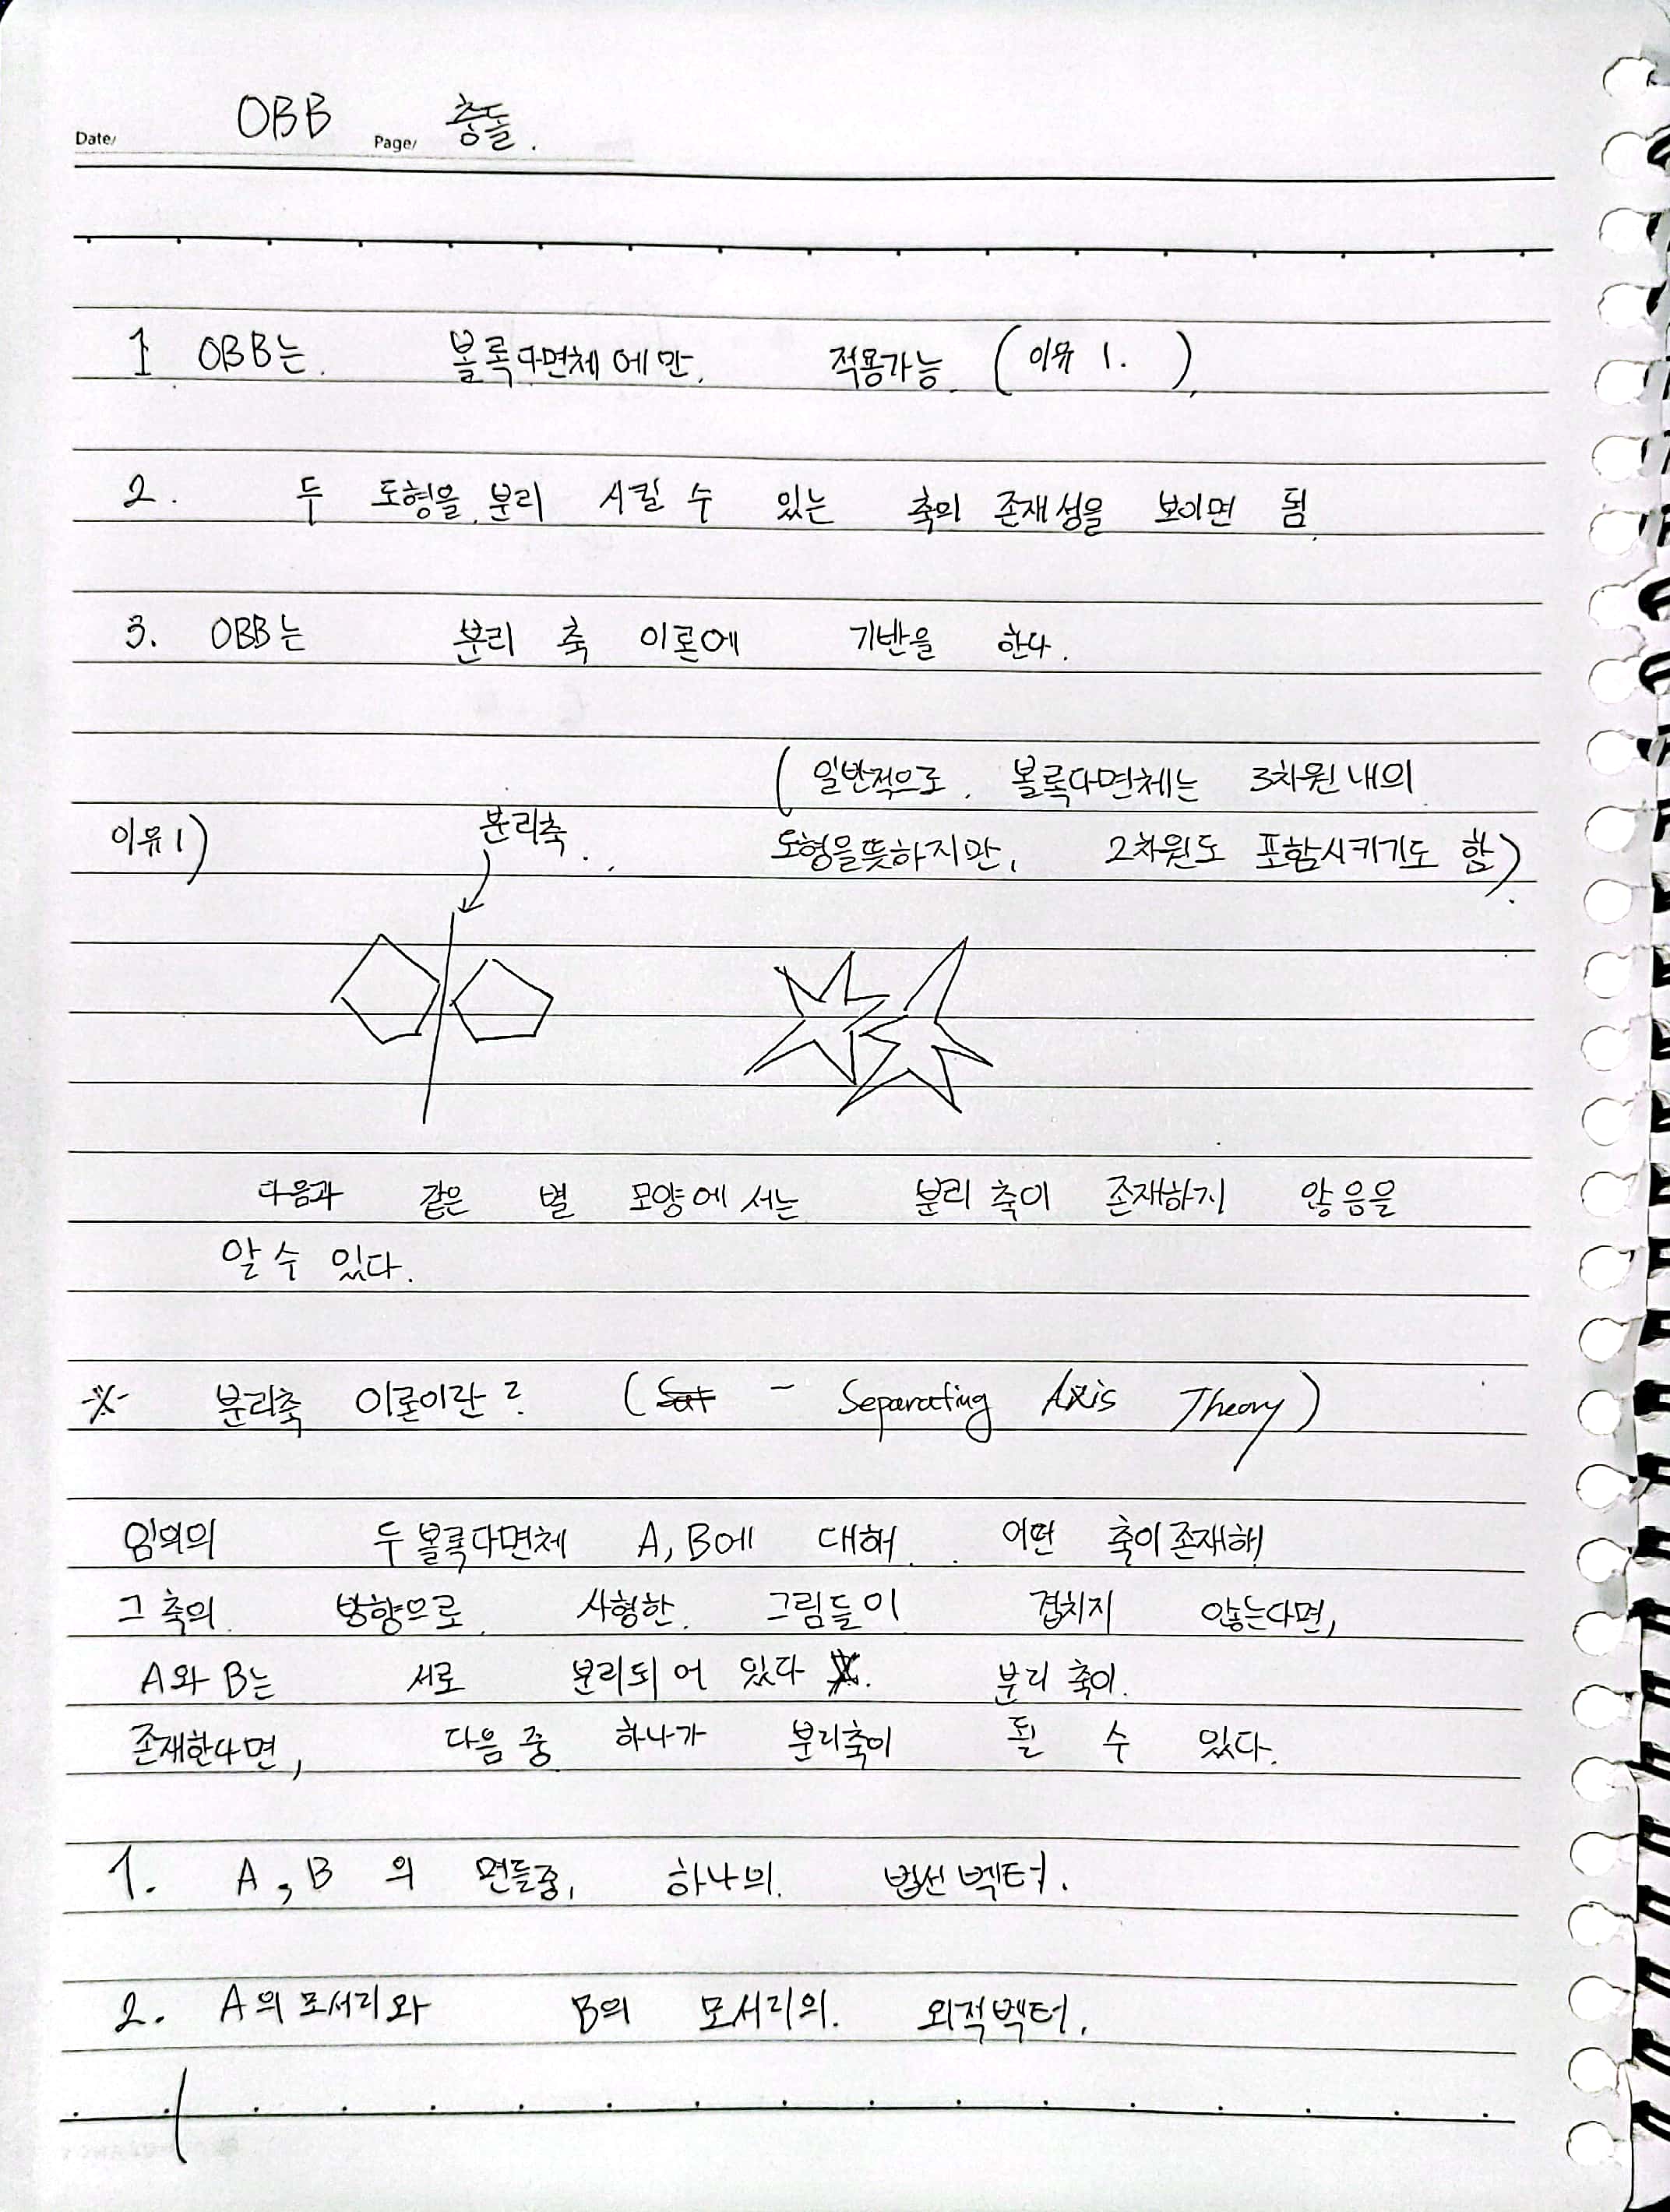 OBB 충돌.
Date/ Page/
1 OBB는 볼록다면체에만 적용가능 (이유 1.)
2. 두 도형을 분리 시킬 수 있는 축의 존재성을 보이면 됨
3. OBB는 분리 축 이론에 기반을 한다.
(일반적으로 볼록다면체는 3차원 내의
도형을뜻하지만, 2차원도 포함시키기도 함)
이유1)
분리축
다음과 같은 별 모양에서는 분리 축이 존재하지 않음을
알 수 있다.
※ 분리축 이론이란? (Sat - Separating Axis Theory)
임의의 두 볼록다면체 A, B에 대해 어떤 축이 존재해
그 축의 방향으로 사형한 그림들이 겹치지 않는다면,
A와 B는 서로 분리되어 있다. 분리 축이
존재한다면, 다음 중 하나가 분리축이 될 수 있다.
1. A, B 의 면들중, 하나의 법선벡터.
2. A의 모서리와 B의 모서리의 외적벡터.